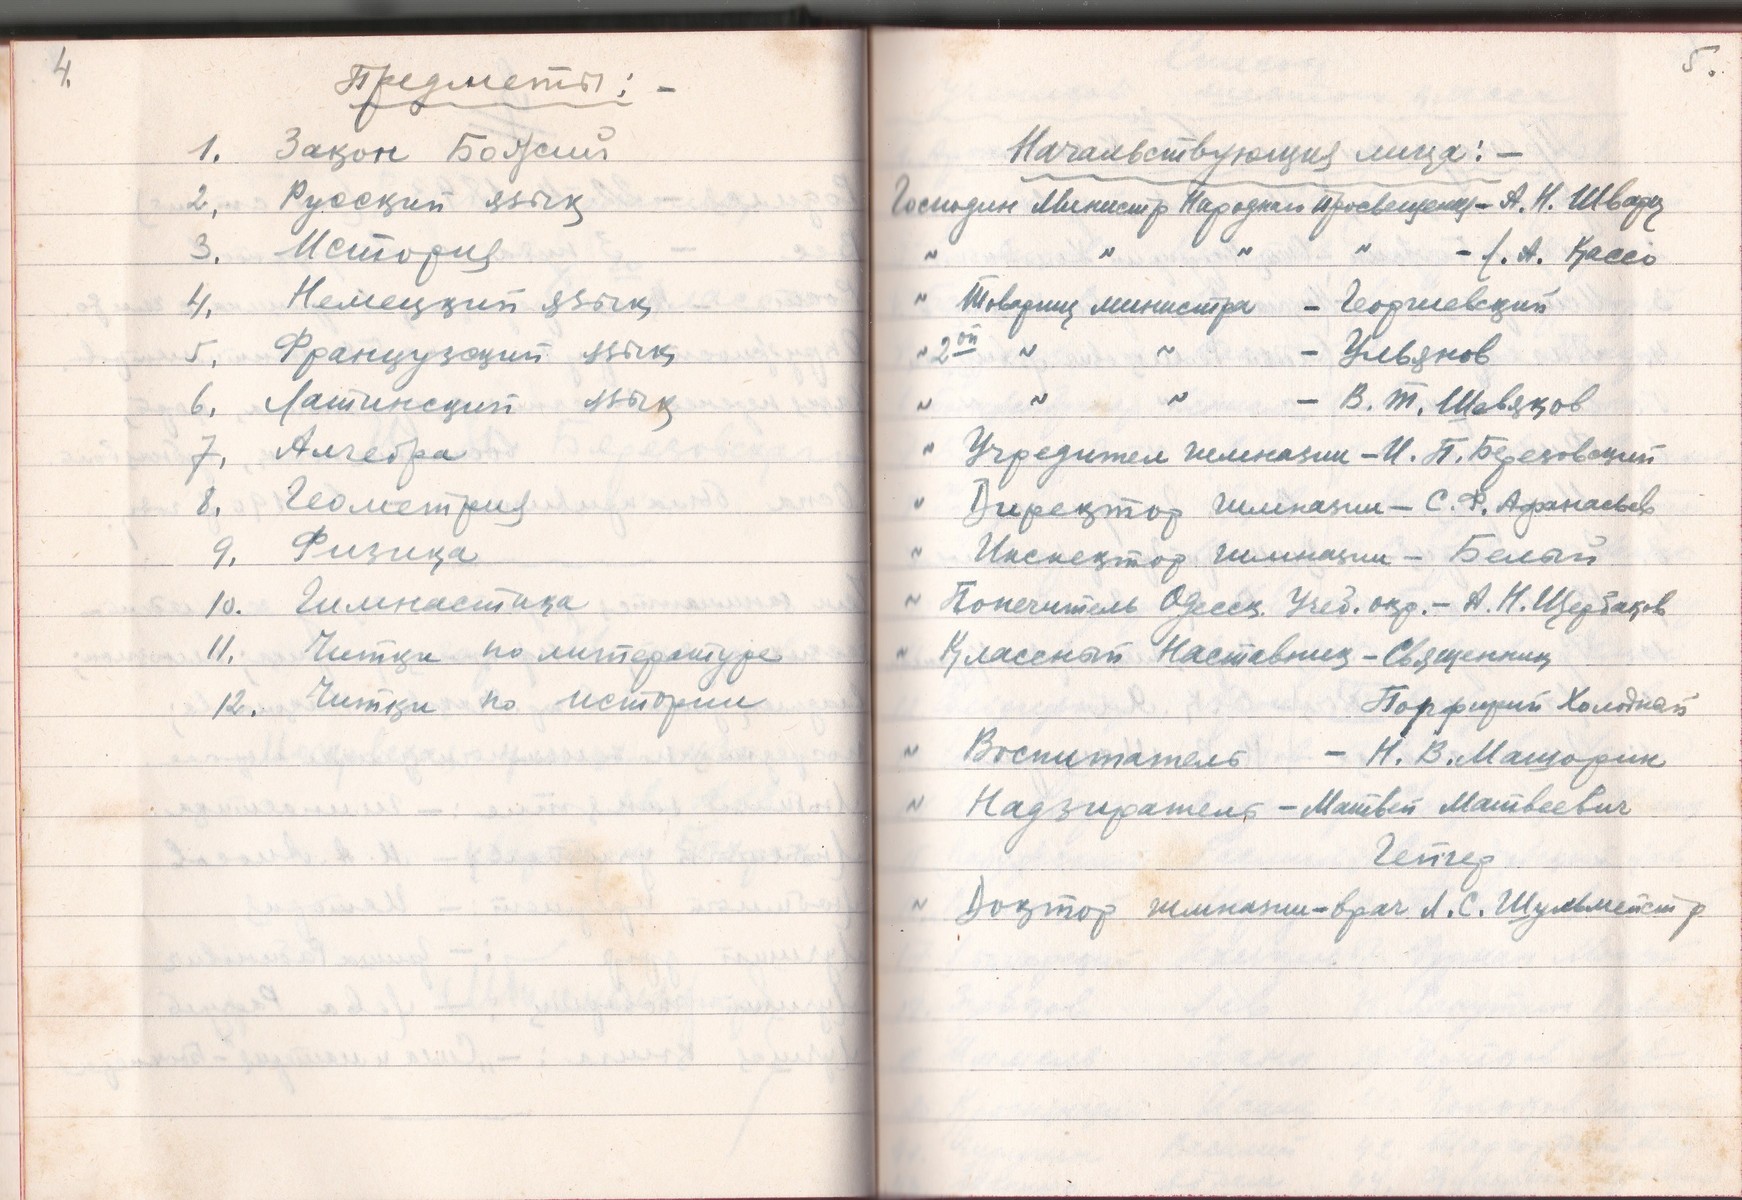 4.
Предметы: –
1. Закон Божий
2. Русский язык
3. История
4. Немецкий язык
5. Французский язык
6. Латинский язык
7. Алгебра
8. Геометрия
9. Физика
10. Гимнастика
11. Читки по литературе
12. Читки по истории
5.
Начальствующия лица: –
Господин Министр Народнаго Просвещения – А. Н. Шварц
" " " " – Л. А. Кассо
" Товарищ министра – Георгиевский
" 2ой " " – Ульянов
" " " – В. Т. Шевяков
" Учредител гимназии – И. П. Березовский
" Директор гимназии – С. Ф. Афанасьев
" Инспектор гимназии – Белый
" Попечитель Одесск. Учеб. окр. – А. И. Щербаков
" Классный Наставник – Священник
Порфирий Холодный
" Воспитатель – Н. В.
" Надзиратель – Матвей Матвеевич
Гепнер
" Доктор гимназии – врач Л. С. Шульмейстр